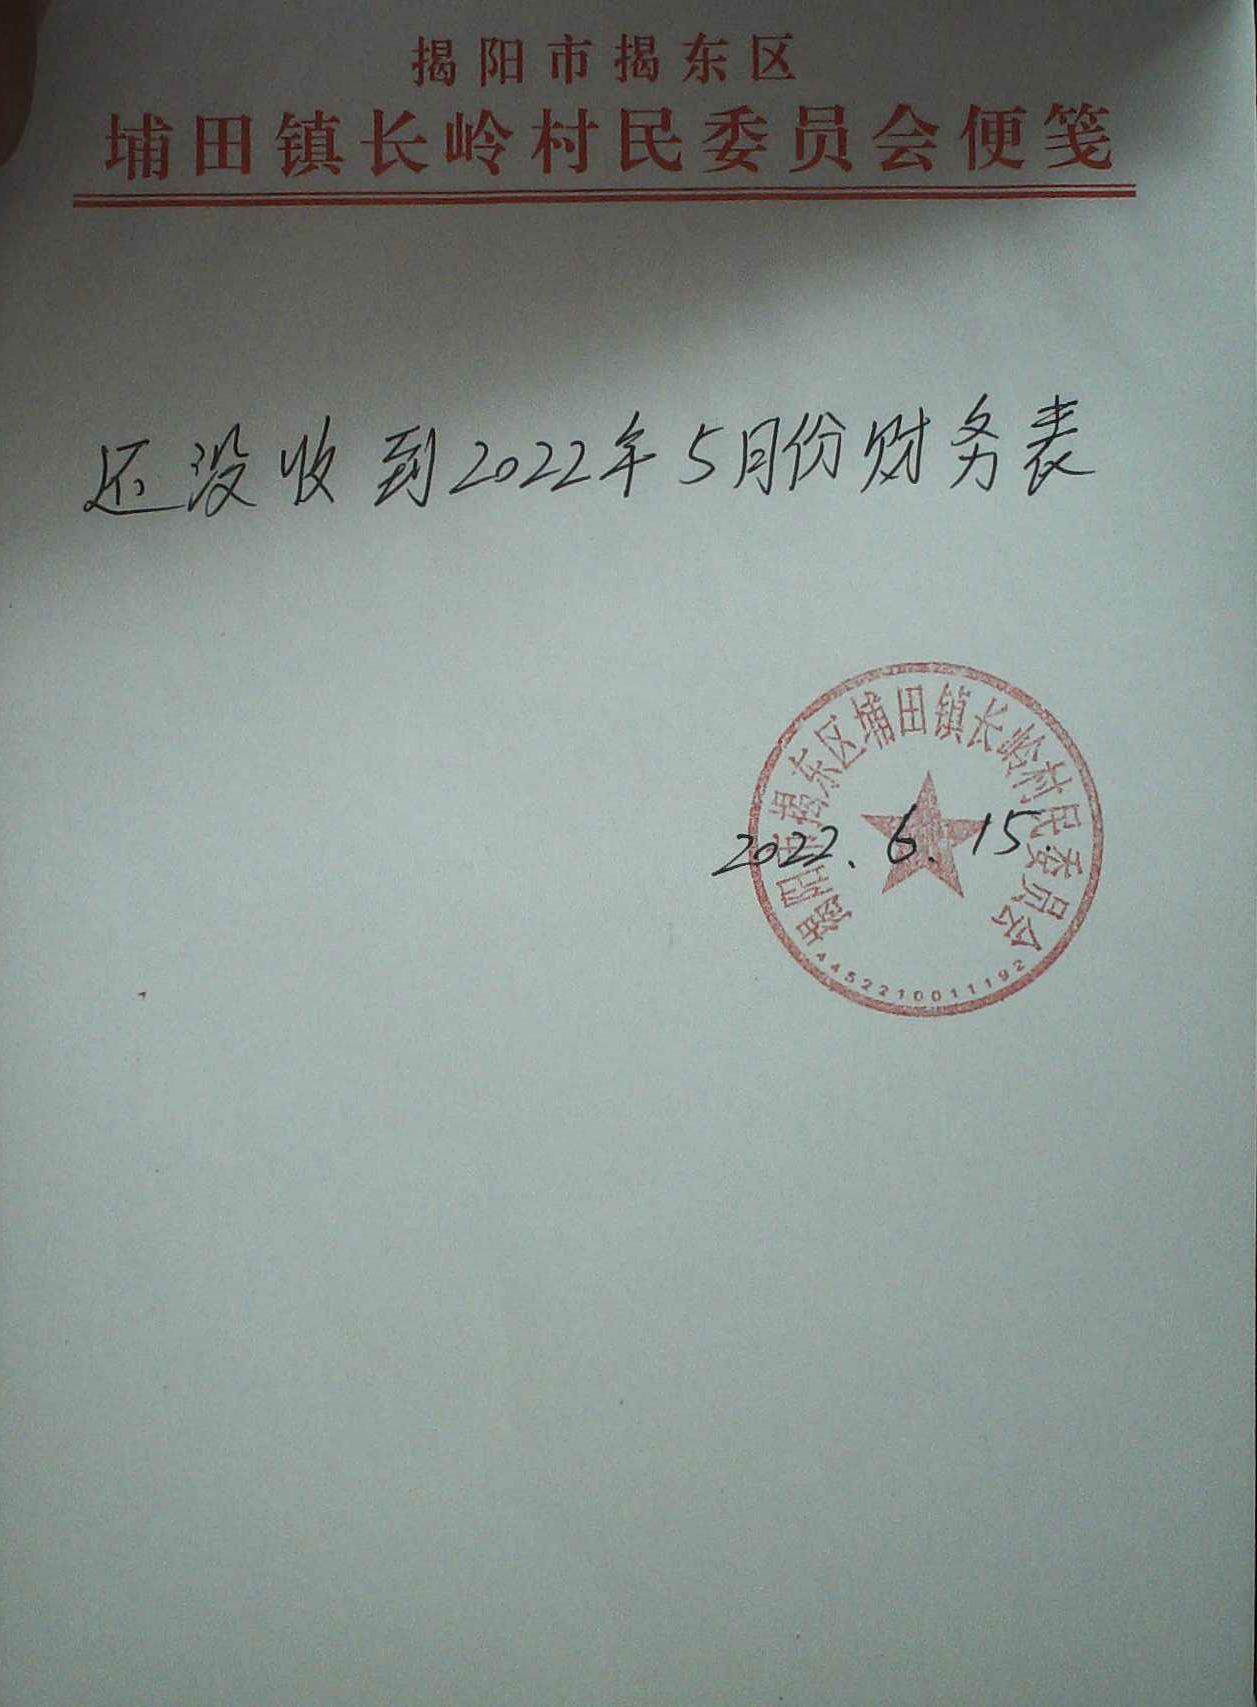 揭阳市揭东区
埔田镇长岭村民委员会便笺
还没收到2022年5月份财务表
揭阳市揭东区埔田镇长岭村民委员会
2022.6.15.
4452210011192